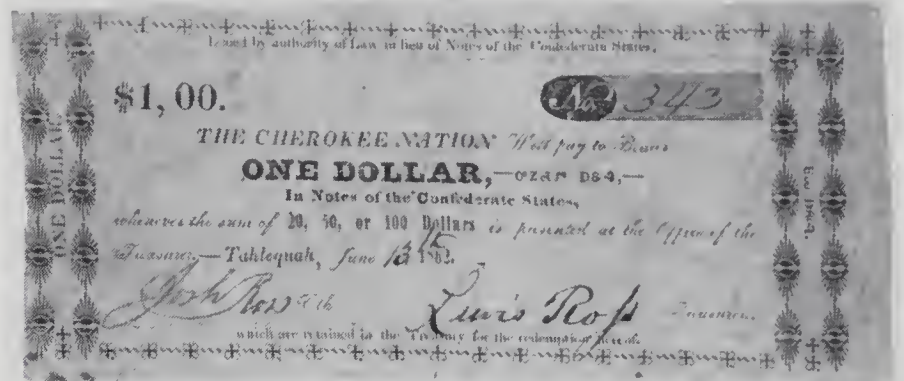 Issued by authority of Law in lieu of Notes of the Confederate States.
$1,00.
No. 343
THE CHEROKEE NATION Will pay to Bearer
ONE DOLLAR,—
In Notes of the Confederate States,
whenever the sum of 20, 50, or 100 Dollars is presented at the Office of the
Treasurer.—Tahlequah, June 13th 1862.
Josh Ross
Lewis Ross Treasurer.
which are retained in the Treasury for the redemption hereof.
ONE DOLLAR.